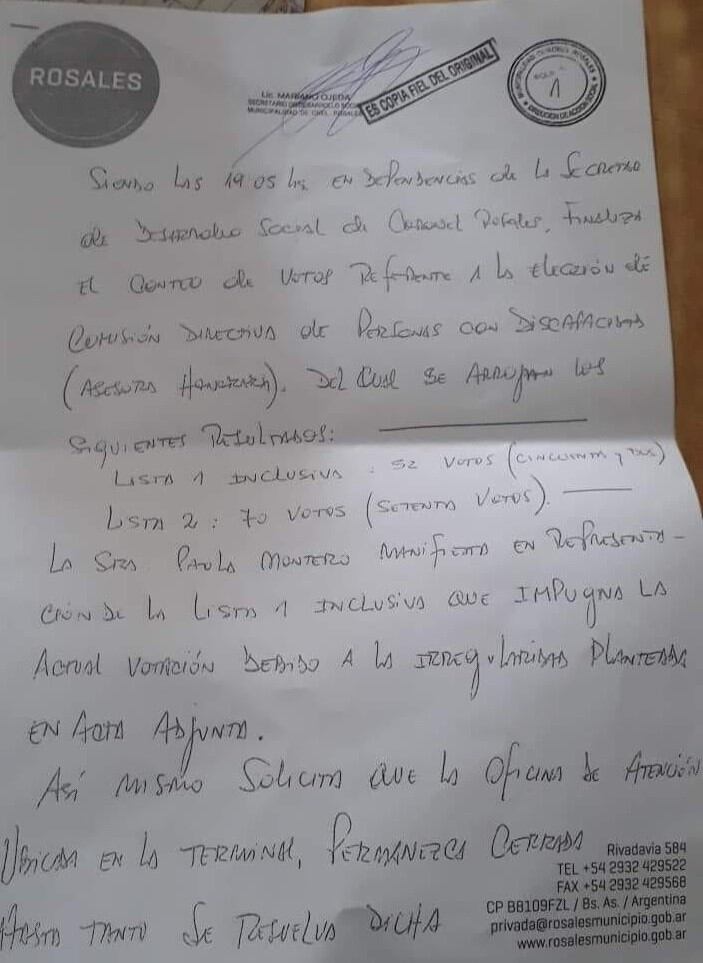 ROSALES
Lic. MARIANO OJEDA
SECRETARIO DE DESARROLLO SOCIAL
MUNICIPALIDAD DE CNEL. ROSALES
ES COPIA FIEL DEL ORIGINAL
MUNICIPALIDAD CORONEL ROSALES
FOLIO
1
Siendo las 19 05 hs en dependencias de la Secretaría
de Desarrollo Social de Coronel Rosales, finaliza
el conteo de votos referente a la elección de
Comisión Directiva de Personas con Discapacidad
(Asesora Honoraria). Del cual se arrojan los
siguientes resultados:
Lista 1 Inclusiva : 52 votos (cincuenta y dos)
Lista 2 : 70 votos (setenta votos).
La Sra Paula Montero manifiesta en representa-
ción de la Lista 1 Inclusiva que impugna la
actual votación debido a la irregularidad planteada
en acta adjunta.
Así mismo solicita que la oficina de atención
ubicada en la terminal, permanezca cerrada
hasta tanto se resuelva dicha
Rivadavia 584
TEL +54 2932 429522
FAX +54 2932 429568
CP B8109FZL / Bs. As. / Argentina
privada@rosalesmunicipio.gob.ar
www.rosalesmunicipio.gob.ar